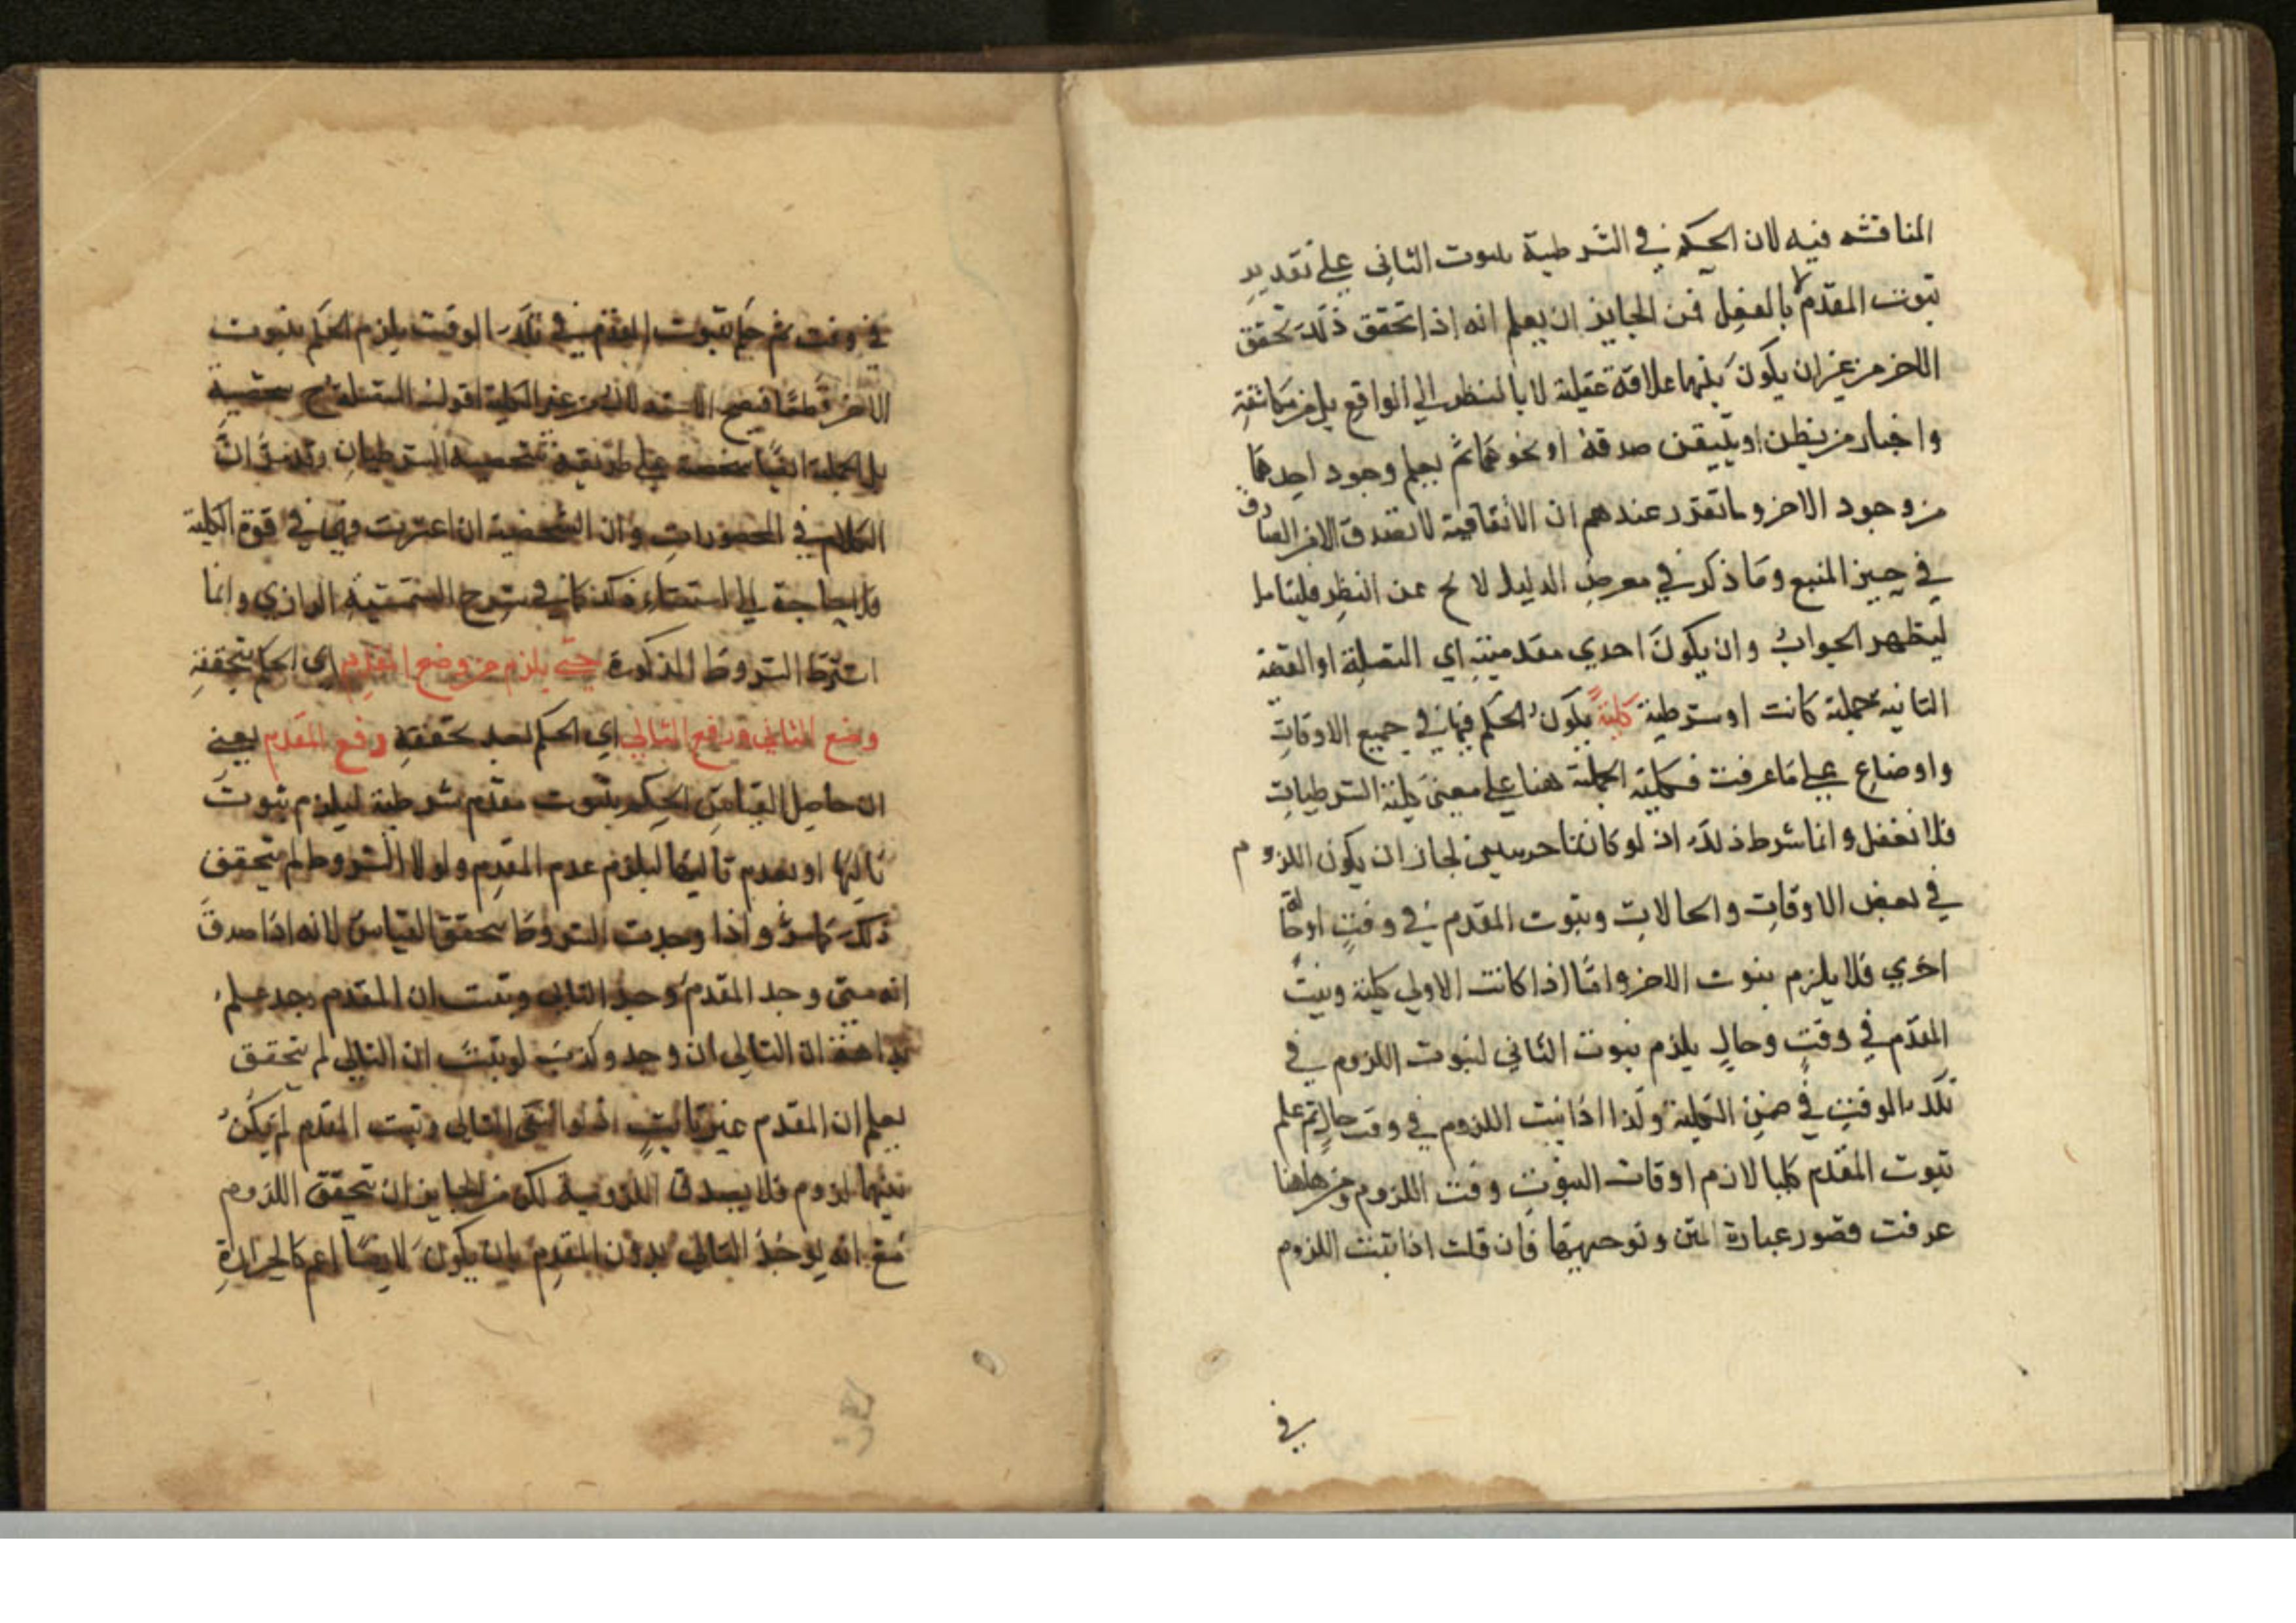 المناقشه فيه لان الحكم في الشرطية بثبوت الثاني علي تقدير
ثبوت المقدم لا بالفعل فمن الجايز ان يعلم انه اذا تحقق ذلك تحقق
الاخر من غير ان يكون بينهما علاقة عقيلة لا بالنظر الي الواقع بل من مكاشفة
واخبار من يظن او يتيقن صدقه او نحوهما ثم يعلم وجود احدهما
من وجود الاخر وما تقرر عندهم ان الاتفاقية لا تصدق الا في الصادق
في حيز المنع وما ذكر في معرض الدليل لا يخ عن النظر فليتامل
ليظهر الجواب وان يكون احدي مقدمتيه اي المتصلة او القضية
الثانيه حملية كانت او شرطية كلية يكون الحكم فيها في جميع الاوقات
واوضاع علي ما عرفت فكلية الحملية هنا علي معني كلية الشرطيات
فلا تغفل وانما شرط ذلك اذ لو كانتا جزييتين لجاز ان يكون اللزوم
في بعض الاوقات والحالات وثبوت المقدم في وقت او حالة
اخري فلا يلزم ثبوت الاخر واما اذا كانت الاولي كلية وثبت
المقدم في وقت وحال يلزم ثبوت الثاني لثبوت اللزوم في
تلك الوقت في ضمن الكلية ولذا اذا ثبت اللزوم في وقت حال ثم علم
ثبوت المقدم كليا لازم اوقات الثبوت وقت اللزوم ومن هاهنا
عرفت قصور عبارة المتن وتوجيهها فان قلت اذا ثبت اللزوم
في
في وقت ثم حكم بثبوت المقدم في تلك الوقت يلزم الحكم بثبوت
الاخر قطعا فيصح من غير الكلية اقول المتصلة ح شخصية
بل الحملية ايضا شخصية علي طريقة شخصية الشرطيات وقد مر ان
الكلام في المحصورات وان الشخصية ان اعتبرت فهي في قوة الكلية
فلا حاجة الي استثناء كذا في شرح الشمسية الرازي وانما
اشترط الشروط المذكورة حتي يلزم من وضع المقدم اي الحكم بتحققه
وضع الثاني ورفع التالي اي الحكم بعدم تحققه رفع المقدم يعني
ان حاصل القياس الحكم بثبوت مقدم شرطية ليلزم ثبوت
تاليها او بعدم تاليها ليلزم عدم المقدم ولولا الشروط لم يتحقق
ذلك كما مر واذا وجدت الشروط يتحقق القياس لانه اذا صدق
انه متي وجد المقدم وجد التالي وثبت ان المقدم وجد علم
بداهة ان التالي ان وجد وكذا لو ثبت ان التالي لم يتحقق
يعلم ان المقدم غير ثابت اذ لو انتفي التالي وثبت المقدم لم يكن
بينهما لزوم فلا يصدق اللزومية لكن من الجايز ان يتحقق اللزوم
مع انه يوجد التالي بدون المقدم بان يكون لازما اعم كالحرارة